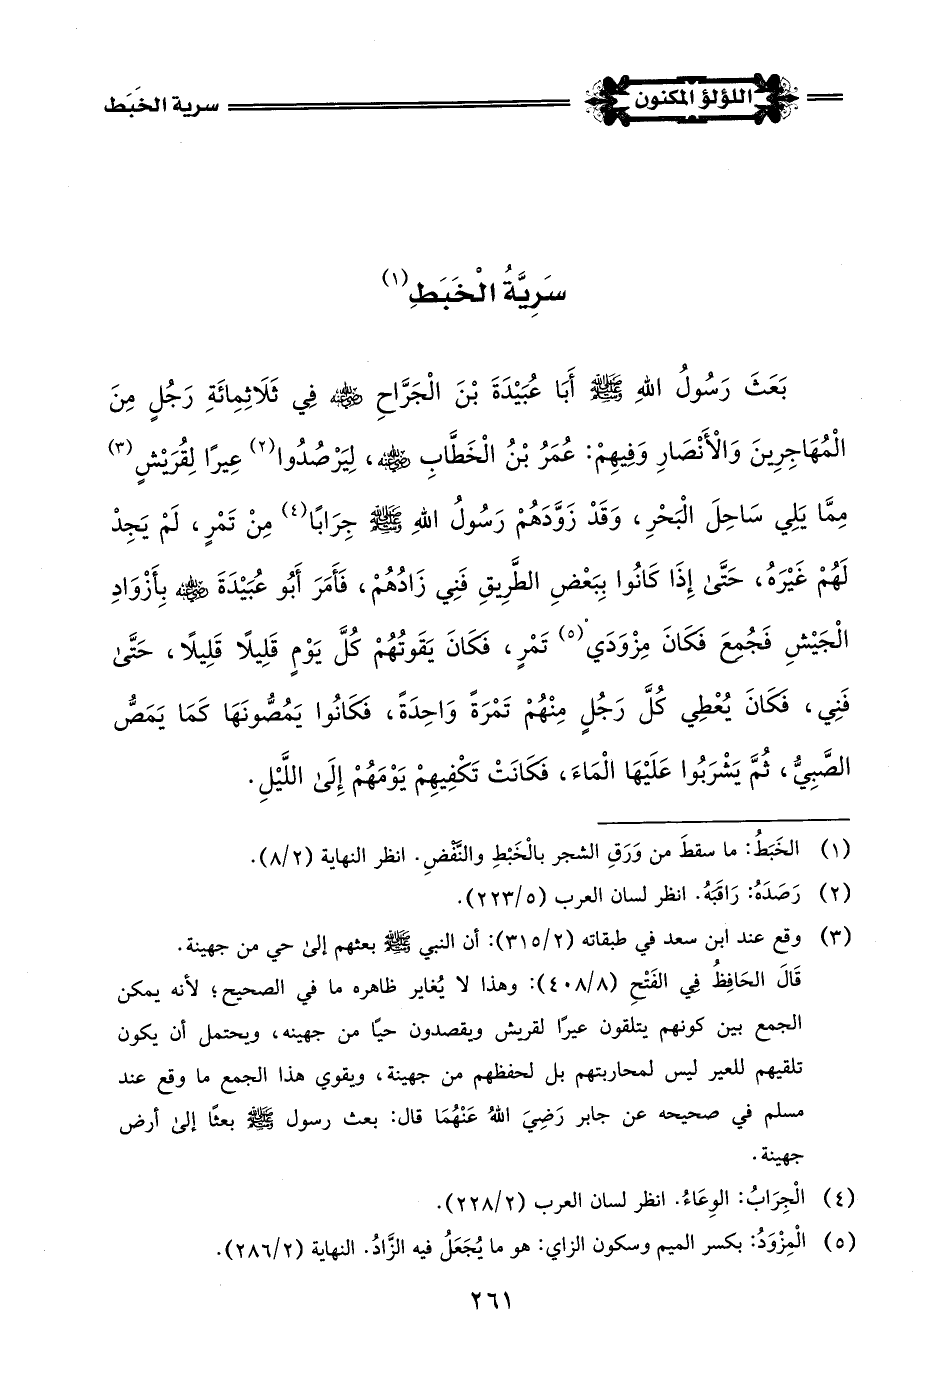 اللؤلؤ المكنون
سرية الخَبَط
سَرِيَّةُ الْخَبَطِ(١)
بَعَثَ رَسُولُ اللهِ ﷺ أَبَا عُبَيْدَةَ بْنَ الْجَرَّاحِ ﵁ فِي ثَلَاثِمِائَةِ رَجُلٍ مِنَ
الْمُهَاجِرِينَ وَالْأَنْصَارِ وَفِيهِمْ: عُمَرُ بْنُ الْخَطَّابِ ﵁، لِيَرْصُدُوا(٢) عِيرًا لِقُرَيْشٍ(٣)
مِمَّا يَلِي سَاحِلَ الْبَحْرِ، وَقَدْ زَوَّدَهُمْ رَسُولُ اللهِ ﷺ جِرَابًا(٤) مِنْ تَمْرٍ، لَمْ يَجِدْ
لَهُمْ غَيْرَهُ، حَتَّىٰ إِذَا كَانُوا بِبَعْضِ الطَّرِيقِ فَنِي زَادُهُمْ، فَأَمَرَ أَبُو عُبَيْدَةَ ﵁ بِأَزْوَادِ
الْجَيْشِ فَجُمِعَ فَكَانَ مِزْوَدَي(٥) تَمْرٍ، فَكَانَ يَقُوتُهُمْ كُلَّ يَوْمٍ قَلِيلًا قَلِيلًا، حَتَّىٰ
فَنِي، فَكَانَ يُعْطِي كُلَّ رَجُلٍ مِنْهُمْ تَمْرَةً وَاحِدَةً، فَكَانُوا يَمُصُّونَهَا كَمَا يَمَصُّ
الصَّبِيُّ، ثُمَّ يَشْرَبُوا عَلَيْهَا الْمَاءَ، فَكَانَتْ تَكْفِيهِمْ يَوْمَهُمْ إِلَىٰ اللَّيْلِ.
(١) الخَبَطُ: ما سقطَ من وَرَقِ الشجر بالْخَبْطِ والنَّفْضِ. انظر النهاية (٨/٢).
(٢) رَصَدَهُ: رَاقَبَهُ. انظر لسان العرب (٢٢٣/٥).
(٣) وقع عند ابن سعد في طبقاته (٣١٥/٢): أن النبي ﷺ بعثهم إلىٰ حي من جهينة.
قَالَ الحَافِظُ فِي الفَتْحِ (٤٠٨/٨): وهذا لا يُغاير ظاهره ما في الصحيح؛ لأنه يمكن
الجمع بين كونهم يتلقون عيرًا لقريش ويقصدون حيًا من جهينه، ويحتمل أن يكون
تلقيهم للعير ليس لمحاربتهم بل لحفظهم من جهينة، ويقوي هذا الجمع ما وقع عند
مسلم في صحيحه عن جابر رَضِيَ اللهُ عَنْهُمَا قال: بعث رسول ﷺ بعثًا إلىٰ أرض
جهينة.
(٤) الْجِرَابُ: الوِعَاءُ. انظر لسان العرب (٢٢٨/٢).
(٥) الْمِزْوَدُ: بكسر الميم وسكون الزاي: هو ما يُجْعَلُ فيه الزَّادُ. النهاية (٢٨٦/٢).
٢٦١